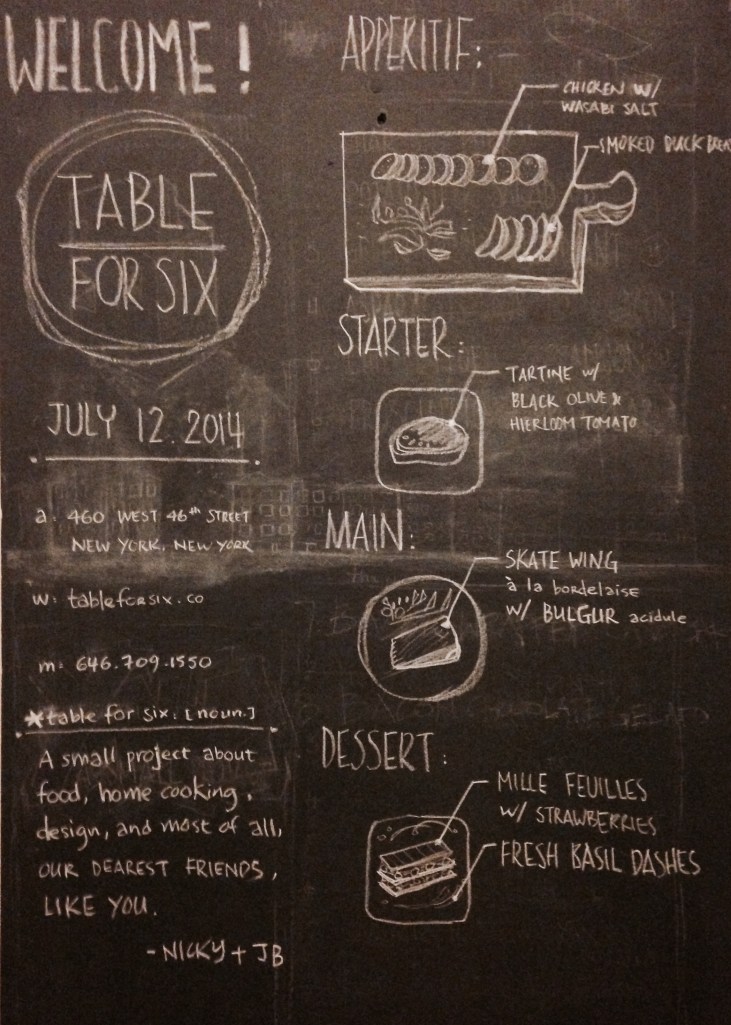 WELCOME!
TABLE
FOR SIX
JULY 12. 2014
a: 460 WEST 46th STREET
NEW YORK, NEW YORK
w: tableforsix.co
m: 646.709.1550
*table for six: [noun.]
A small project about
food, home cooking,
design, and most of all,
OUR DEAREST FRIENDS,
LIKE YOU.
- NICKY + JB
APPERITIF:
CHICKEN W/
WASABI SALT
SMOKED DUCK BREA
STARTER:
TARTINE w/
BLACK OLIVE &
HIERLOOM TOMATO
MAIN:
SKATE WING
à la bordelaise
w/ BULGUR acidule
DESSERT:
MILLE FEUILLES
w/ STRAWBERRIES
FRESH BASIL DASHES